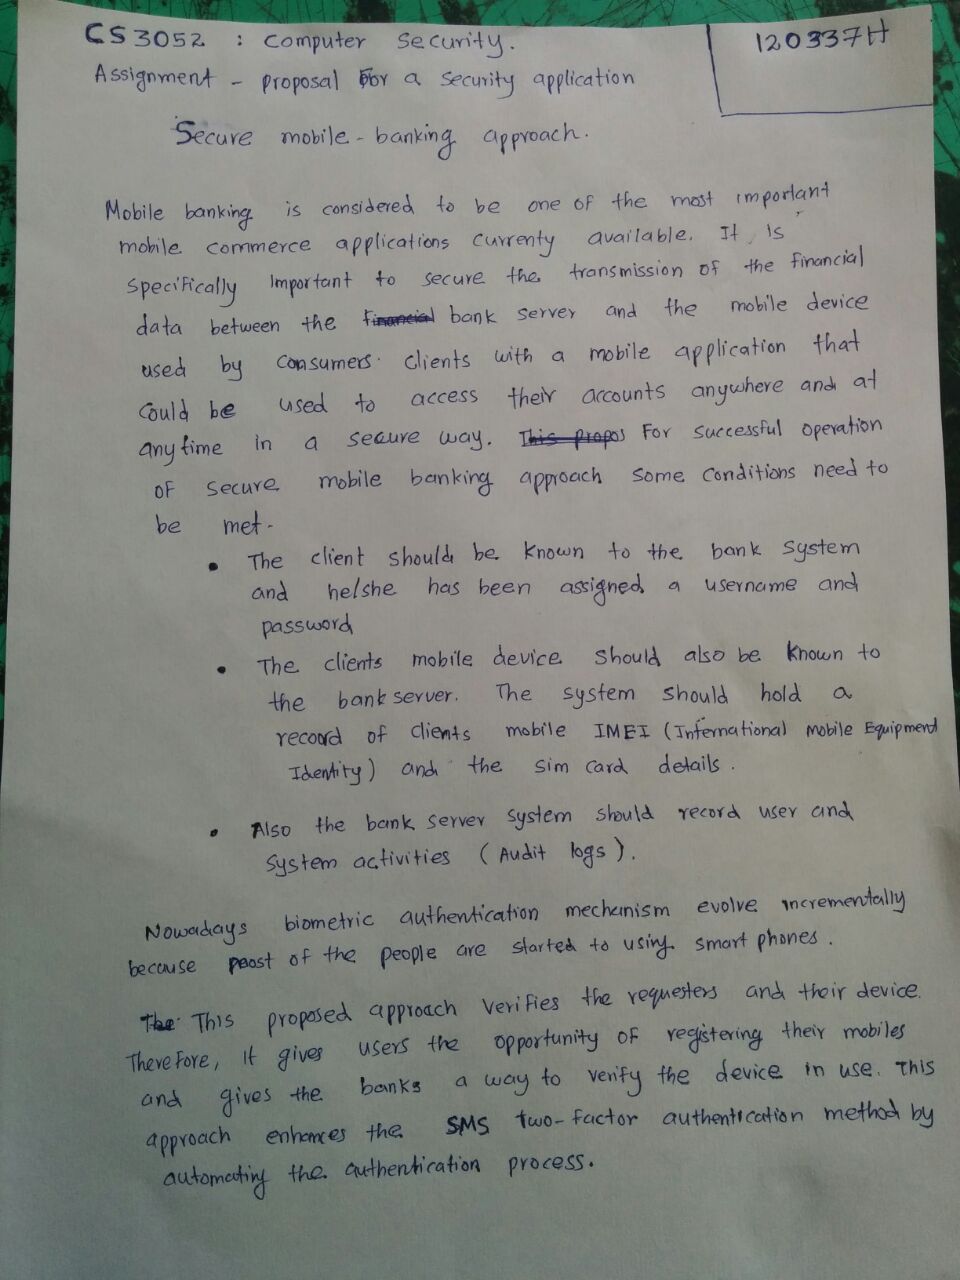 CS3052 : Computer Security.
120337H
Assignment - proposal for a security application
Secure mobile-banking approach.
Mobile banking is considered to be one of the most important
mobile commerce applications currenty available. It is
specifically Important to secure the transmission of the financial
data between the financial bank server and the mobile device
used by consumers. Clients with a mobile application that
could be used to access their accounts anywhere and at
anytime in a secure way. This propos For successful operation
of secure mobile banking approach some conditions need to
be met-
• The client should be known to the bank system
and he/she has been assigned a username and
password
• The clients mobile device should also be known to
the bank server. The system should hold a
record of clients mobile IMEI (International mobile Equipment
Identity) and the sim card details.
• Also the bank server system should record user and
system activities (Audit logs).
Nowadays biometric authentication mechanism evolve incrementally
because most of the people are started to using smart phones.
The This proposed approach verifies the requesters and their device.
Therefore, it gives users the opportunity of registering their mobiles
and gives the banks a way to verify the device in use. This
approach enhances the SMS two-factor authentication method by
automating the authentication process.